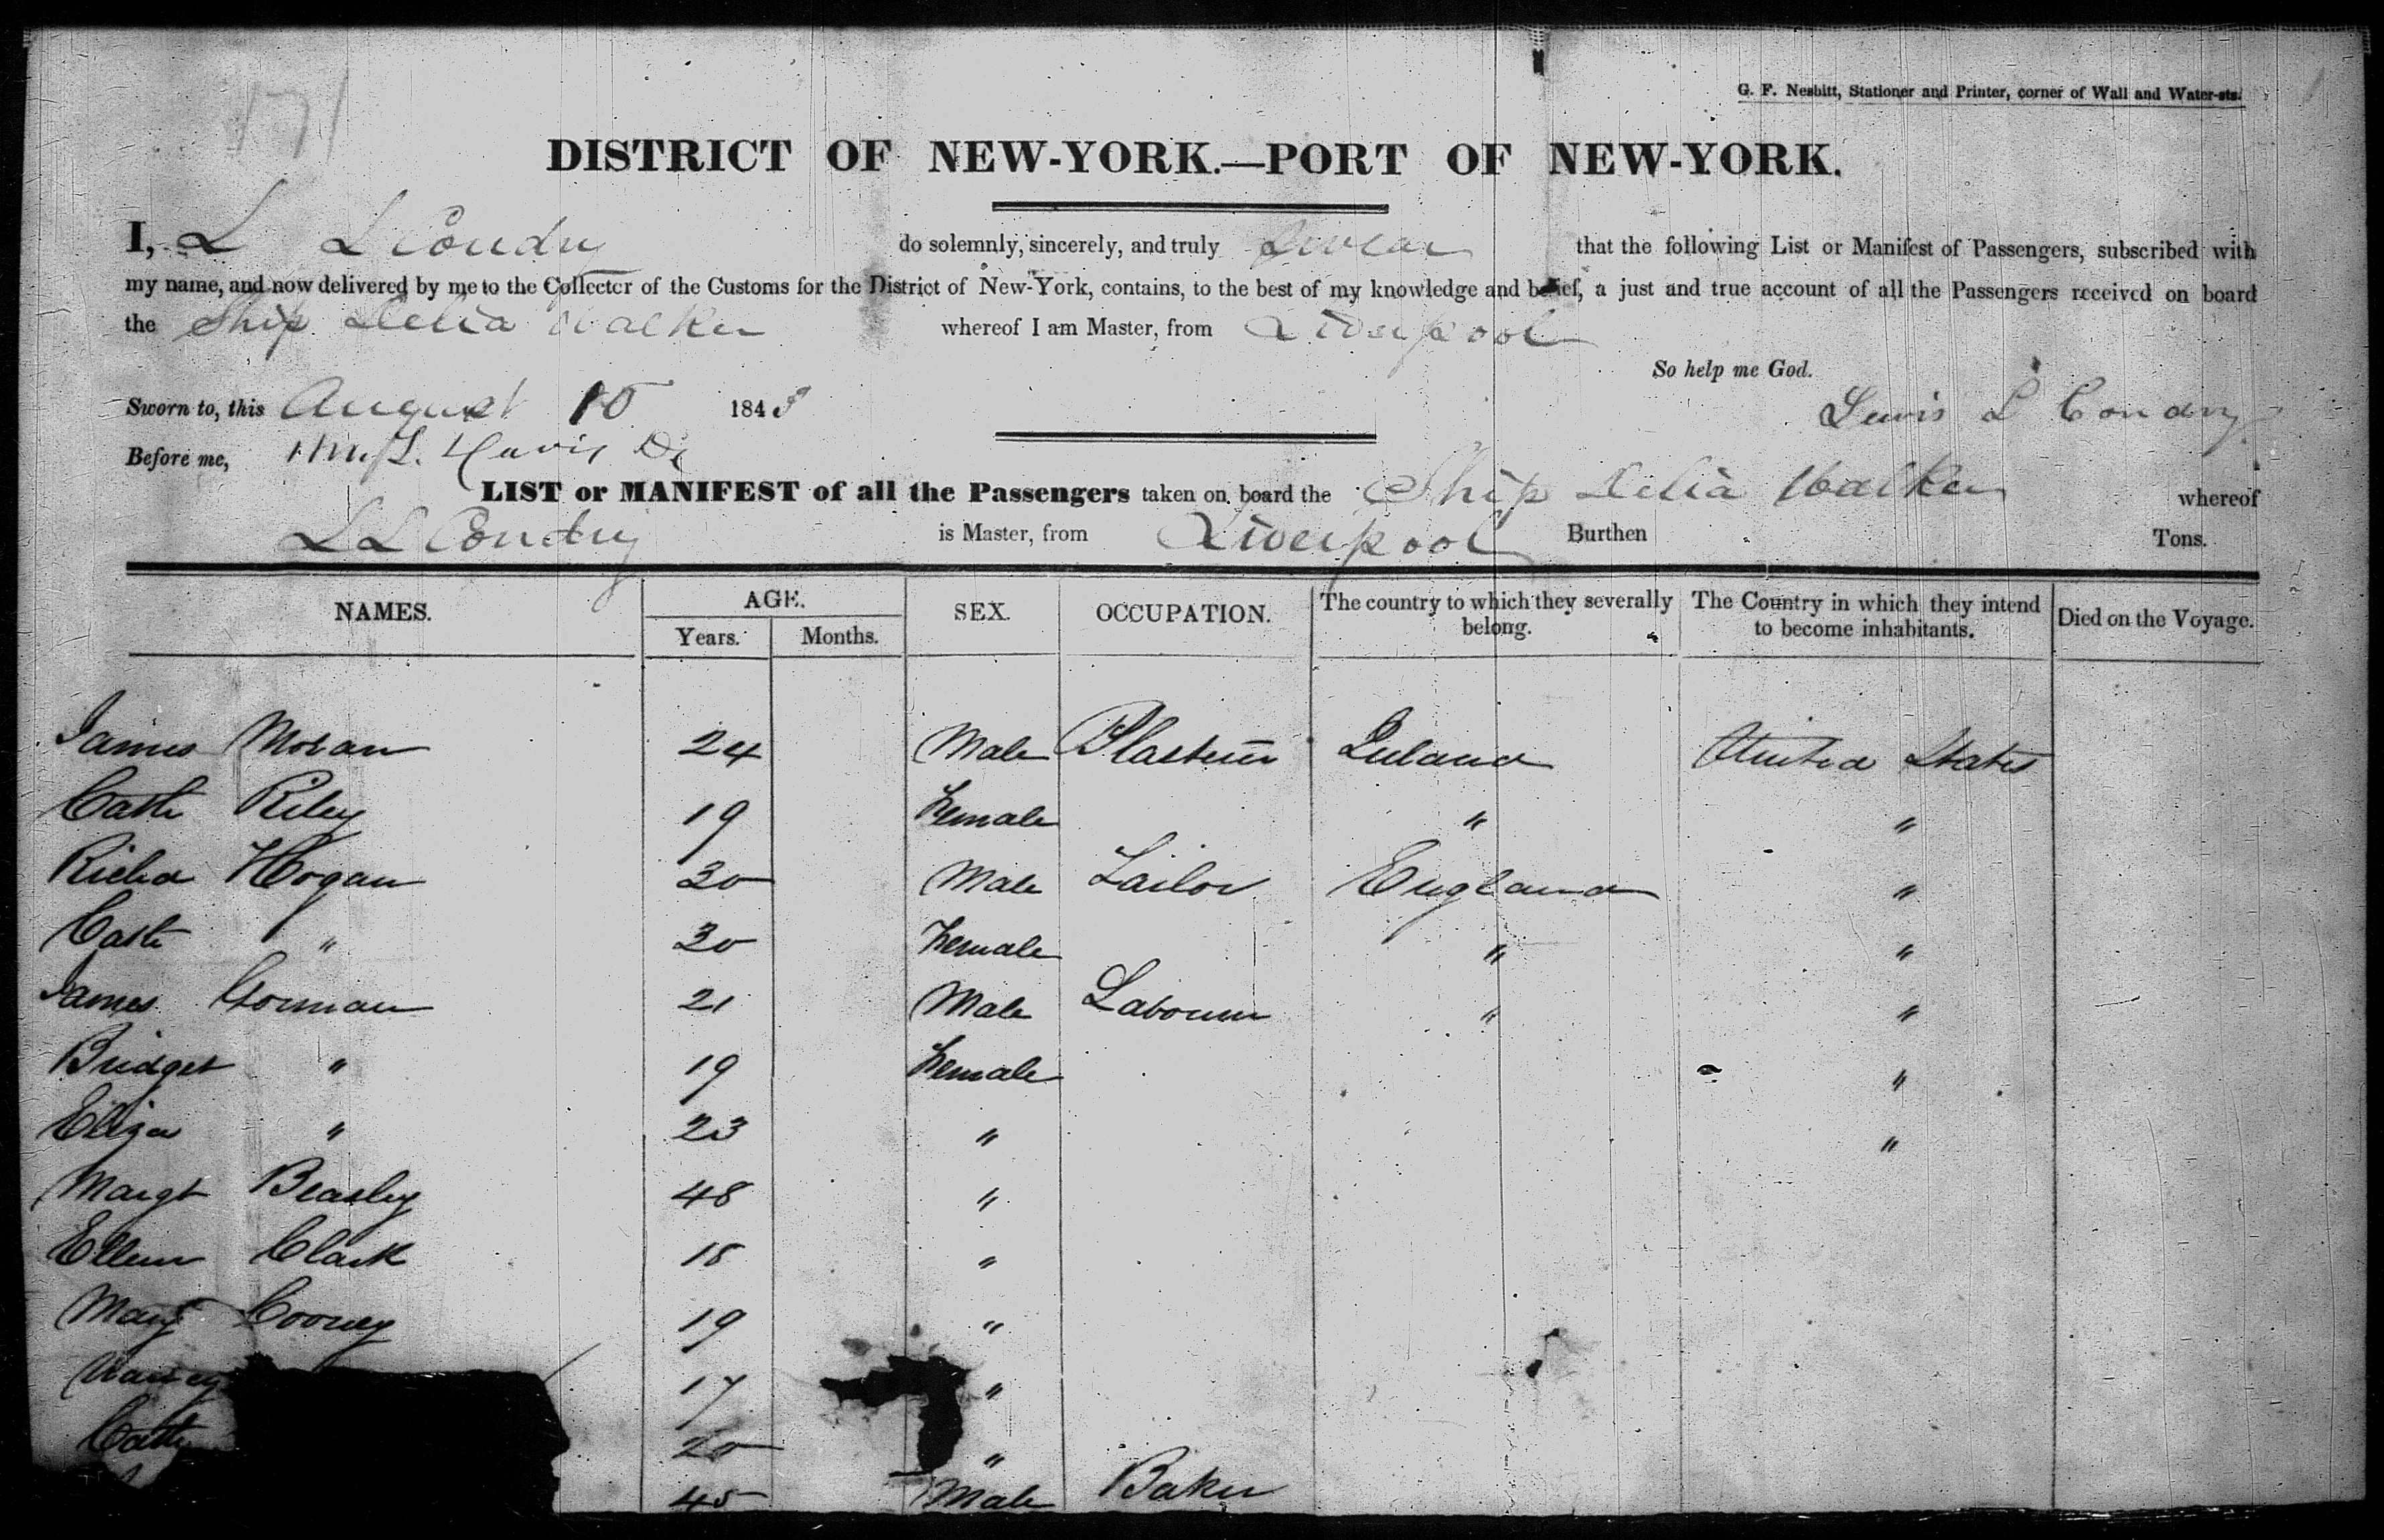 171
G. F. Nesbitt, Stationer and Printer, corner of Wall and Water-sts.
DISTRICT OF NEW-YORK.—PORT OF NEW-YORK.
I, L L Condry do solemnly, sincerely, and truly swear that the following List or Manifest of Passengers, subscribed with
my name, and now delivered by me to the Collector of the Customs for the District of New-York, contains, to the best of my knowledge and belief, a just and true account of all the Passengers received on board
the Ship Delia Walker whereof I am Master, from Liverpool
So help me God.
Sworn to, this August 10 1843 Lewis L Condry
Before me, Davis
LIST or MANIFEST of all the Passengers taken on board the Ship Delia Walker whereof
L L Condry is Master, from Liverpool Burthen Tons.
NAMES. AGE. Years. Months. SEX. OCCUPATION. The country to which they severally belong. The Country in which they intend to become inhabitants. Died on the Voyage.
James Moran 24 Male Plasterer Ireland United States
Cath Riley 19 Female " "
Richd Hogan 30 Male Tailor England "
Cath " 30 Female " "
James Gorman 21 Male Labourer " "
Bridget " 19 Female "
Eliza " 23 " "
Margt Beasley 48 "
Ellen Clark 18 "
Mary Cooney 19 "
Nancy 17 "
Cath 20 "
45 Male Baker